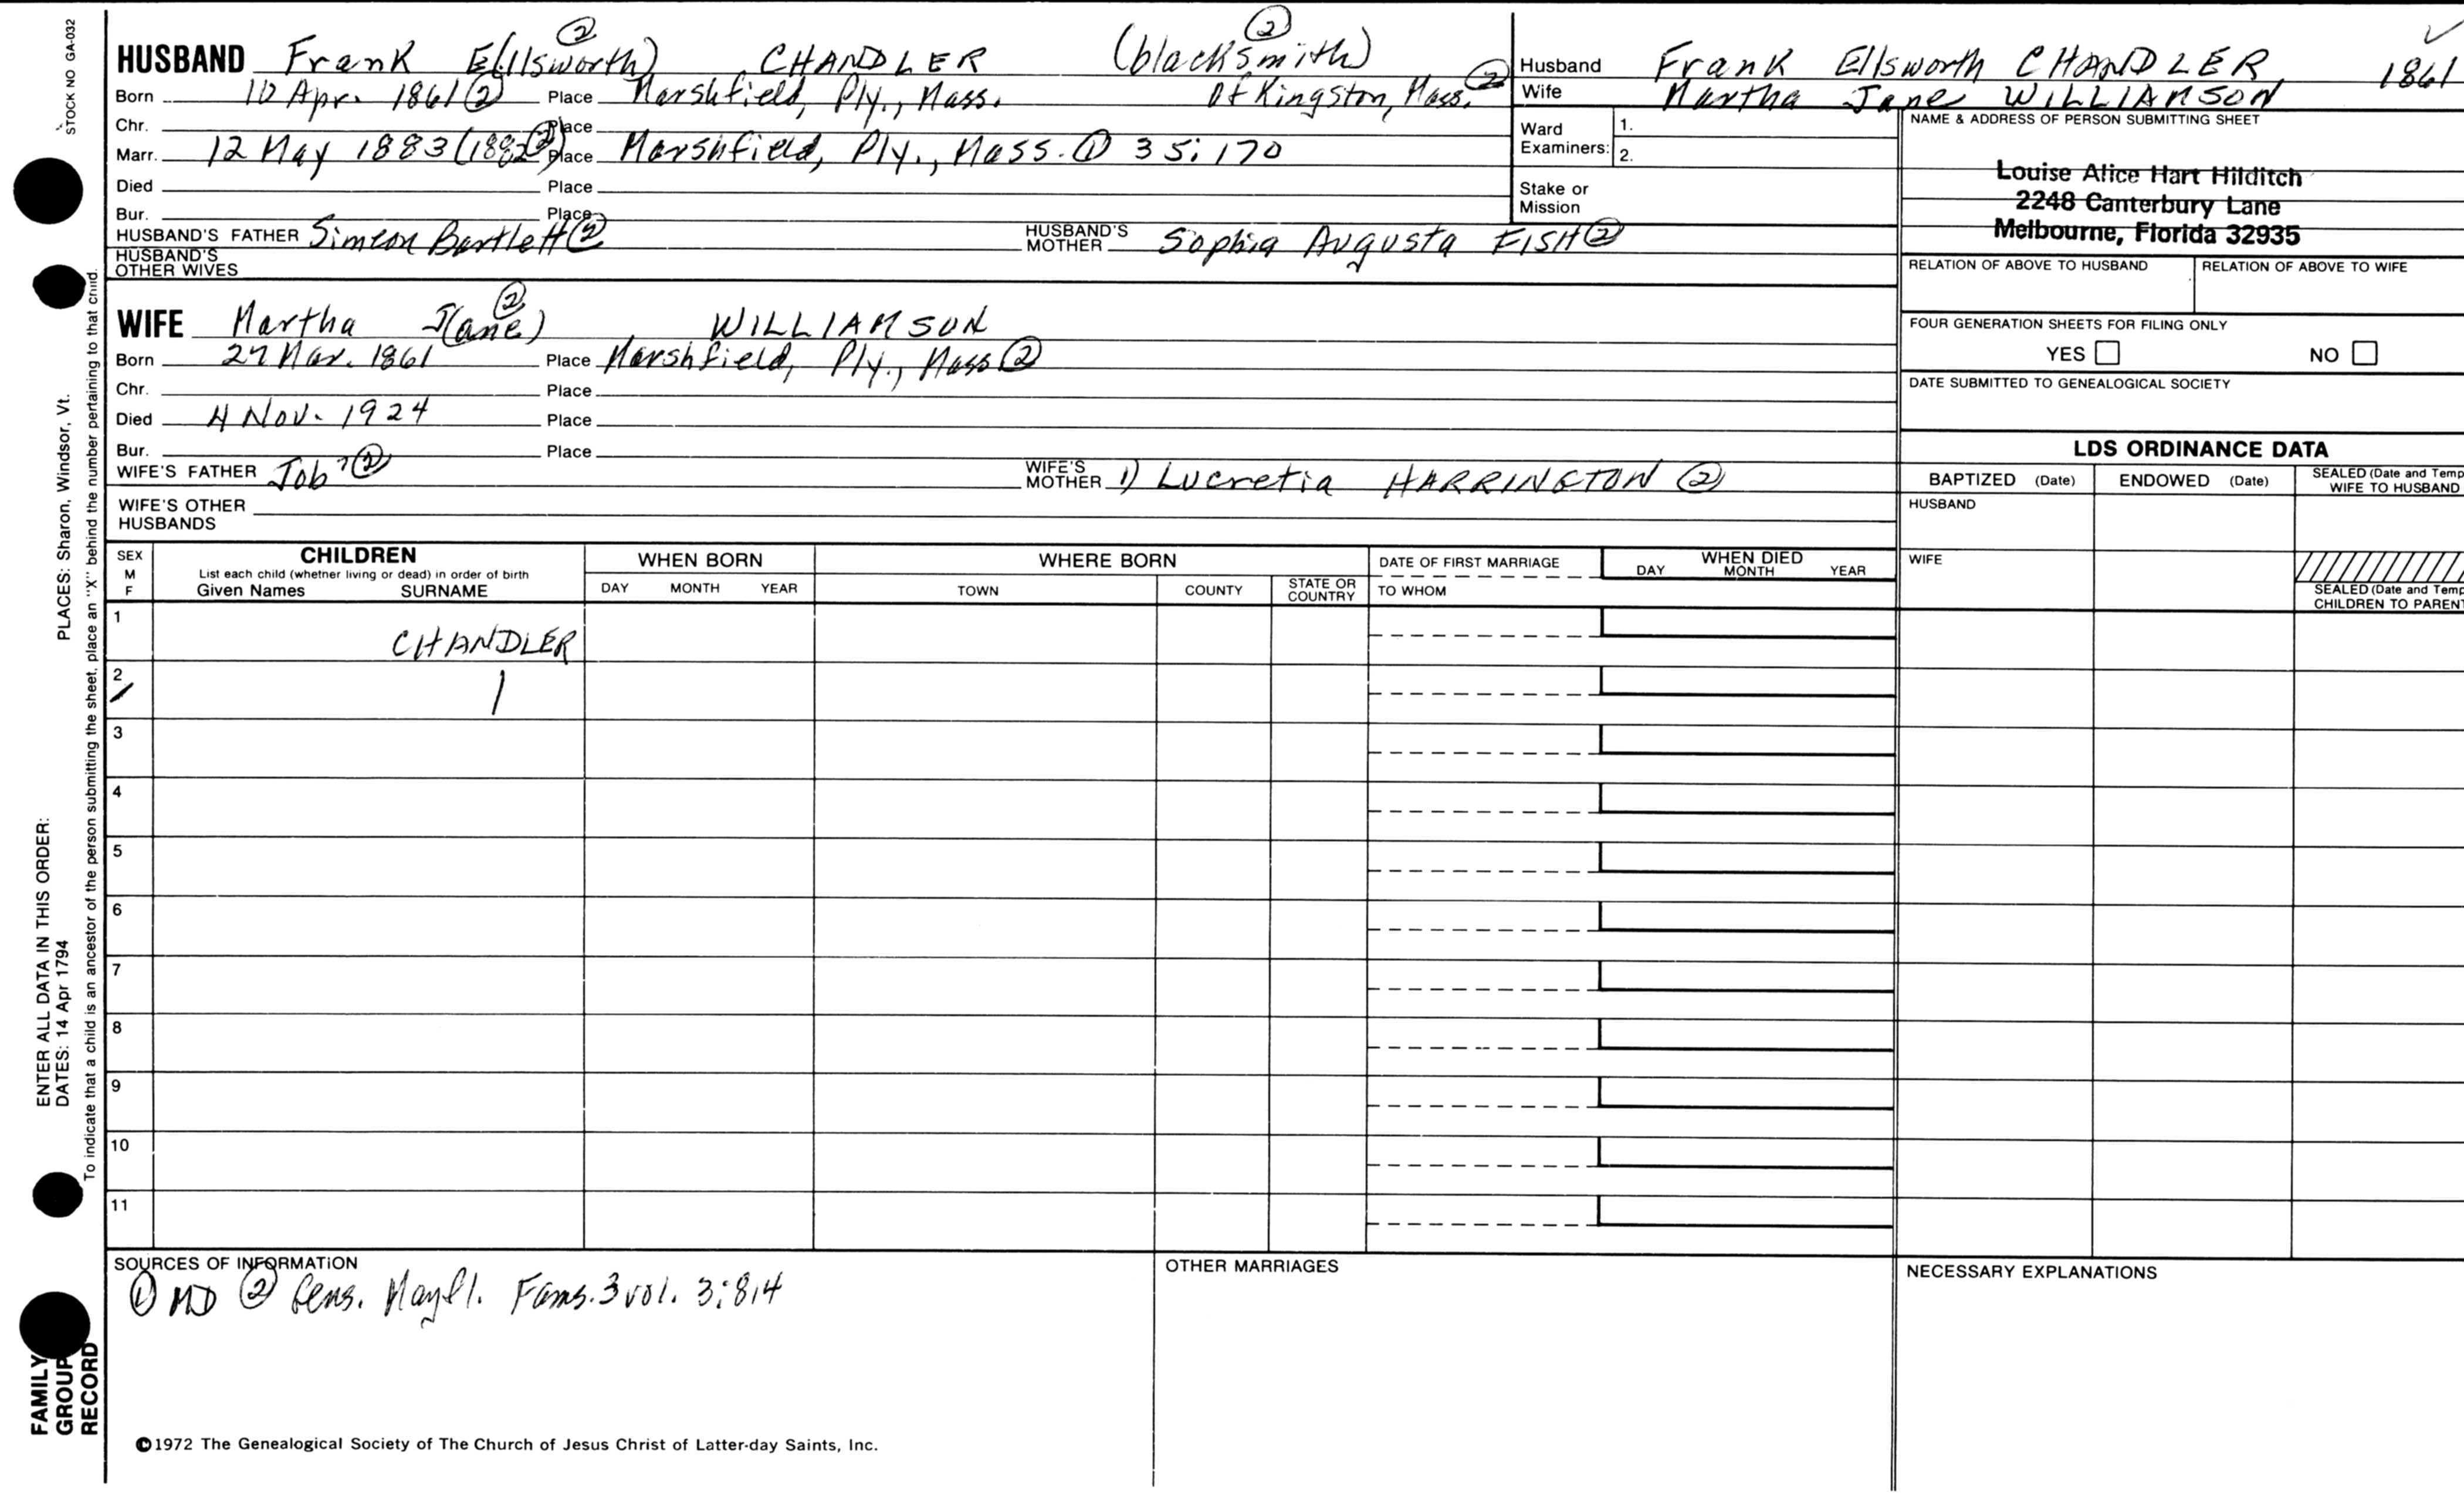 STOCK NO GA-032
PLACES: Sharon, Windsor, Vt.
ENTER ALL DATA IN THIS ORDER:
DATES: 14 Apr 1794
To indicate that a child is an ancestor of the person submitting the sheet, place an "X" behind the number pertaining to that child.
FAMILY
GROUP
RECORD
HUSBAND Frank E(llsworth) ② CHANDLER (blacksmith) ②
Born 10 Apr. 1861 ② Place Marshfield, Ply., Mass. Of Kingston, Mass. ②
Chr. Place
Marr. 12 May 1883 (1882②) Place Marshfield, Ply., Mass. ① 35:170
Died Place
Bur. Place
HUSBAND'S FATHER Simeon Bartlett ② HUSBAND'S MOTHER Sophia Augusta FISH ②
HUSBAND'S OTHER WIVES
WIFE Martha J(ane) ② WILLIAMSON
Born 27 Mar. 1861 Place Marshfield, Ply., Mass ②
Chr. Place
Died 4 Nov. 1924 Place
Bur. Place
WIFE'S FATHER Job ② WIFE'S MOTHER 1) Lucretia HARRINGTON ②
WIFE'S OTHER HUSBANDS
Husband Frank Ellsworth CHANDLER, 1861
Wife Martha Jane WILLIAMSON
Ward Examiners: 1.
2.
Stake or Mission
NAME & ADDRESS OF PERSON SUBMITTING SHEET
Louise Alice Hart Hilditch
2248 Canterbury Lane
Melbourne, Florida 32935
RELATION OF ABOVE TO HUSBAND RELATION OF ABOVE TO WIFE
FOUR GENERATION SHEETS FOR FILING ONLY
YES NO
DATE SUBMITTED TO GENEALOGICAL SOCIETY
LDS ORDINANCE DATA
BAPTIZED (Date) ENDOWED (Date) SEALED (Date and Temp WIFE TO HUSBAND
HUSBAND
WIFE
SEALED (Date and Temp
CHILDREN TO PARENT
SEX M F CHILDREN WHEN BORN WHERE BORN DATE OF FIRST MARRIAGE WHEN DIED
List each child (whether living or dead) in order of birth
Given Names SURNAME DAY MONTH YEAR TOWN COUNTY STATE OR COUNTRY TO WHOM DAY MONTH YEAR
1 CHANDLER
2
3
4
5
6
7
8
9
10
11
SOURCES OF INFORMATION
① MD ② Gens. Mayfl. Fams. 3 vol. 3:814
OTHER MARRIAGES
NECESSARY EXPLANATIONS
©1972 The Genealogical Society of The Church of Jesus Christ of Latter-day Saints, Inc.